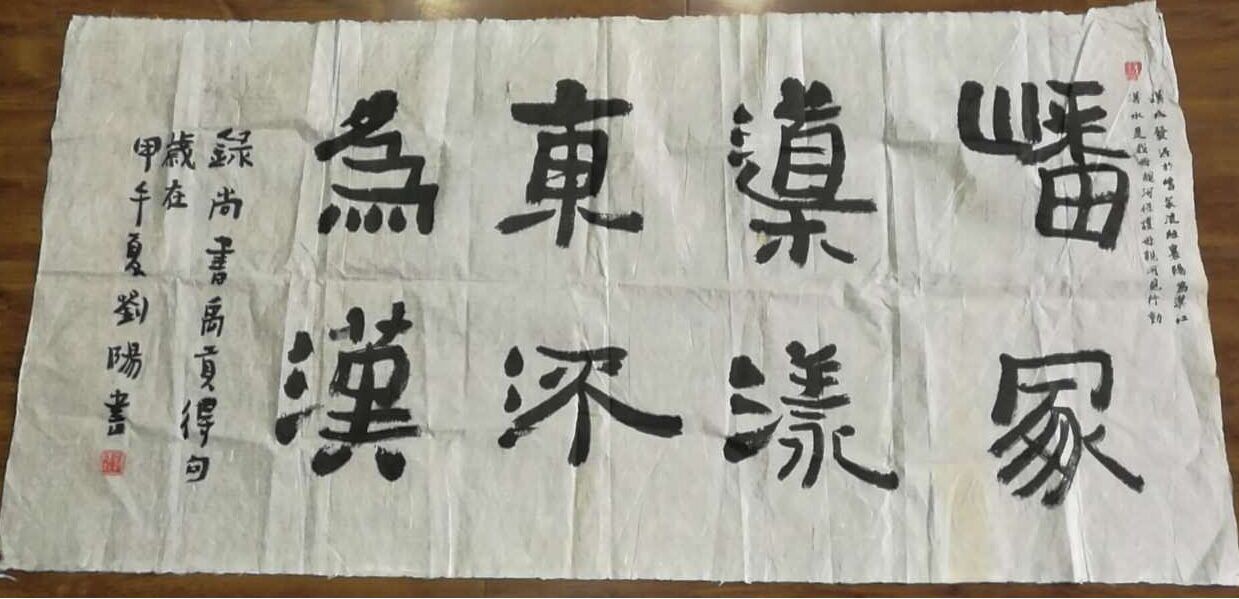 漢水發源於嶓冢流經襄陽為襄江
漢水是我親河保護母親河見行動
嶓冢
導漾
東㳅
為漢
錄尚書禹貢得句
歲在
甲午夏劉陽書